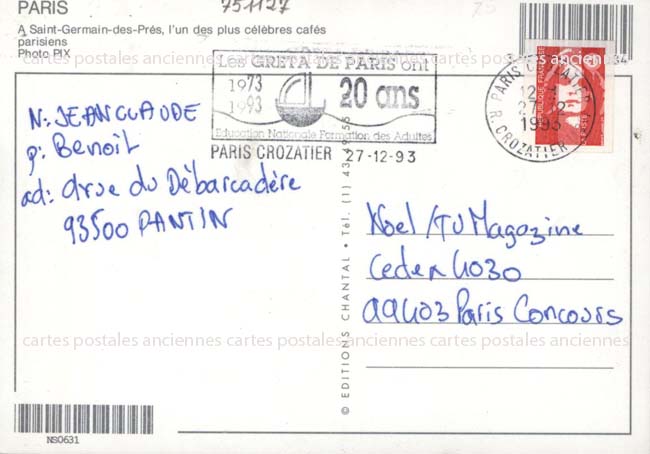 PARIS
751127
A Saint-Germain-des-Prés, l'un des plus célèbres cafés
parisiens
Photo PIX
cartes postales anciennes cartes postales anciennes cartes postales anciennes
Les GRETA DE PARIS ont
1973
1993
20 ans
Education Nationale Formation des Adultes
PARIS CROZATIER 27-12-93
PARIS CROZATIER
27-12
1993
R. CROZATIER
REPUBLIQUE FRANÇAISE
N: JEAN CLAUDE
p: Benoit
ad: 4 rue du Débarcadère
93500 PANTIN
Noel /TU Magazine
Cedex 4030
99403 Paris Concours
cartes postales anciennes cartes postales anciennes cartes postales anciennes
© EDITIONS CHANTAL • Tél. (1) 43 49 55
NS0631